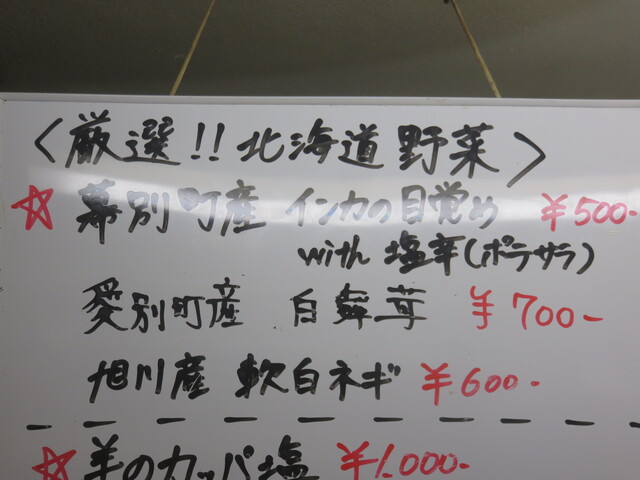 〈厳選!!北海道野菜〉
☆ 幕別町産 インカの目覚め ¥500-
with 塩辛(ポテサラ)
愛別町産 白舞茸 ¥700-
旭川産 軟白ネギ ¥600-
☆羊のカッパ塩 ¥1.000-